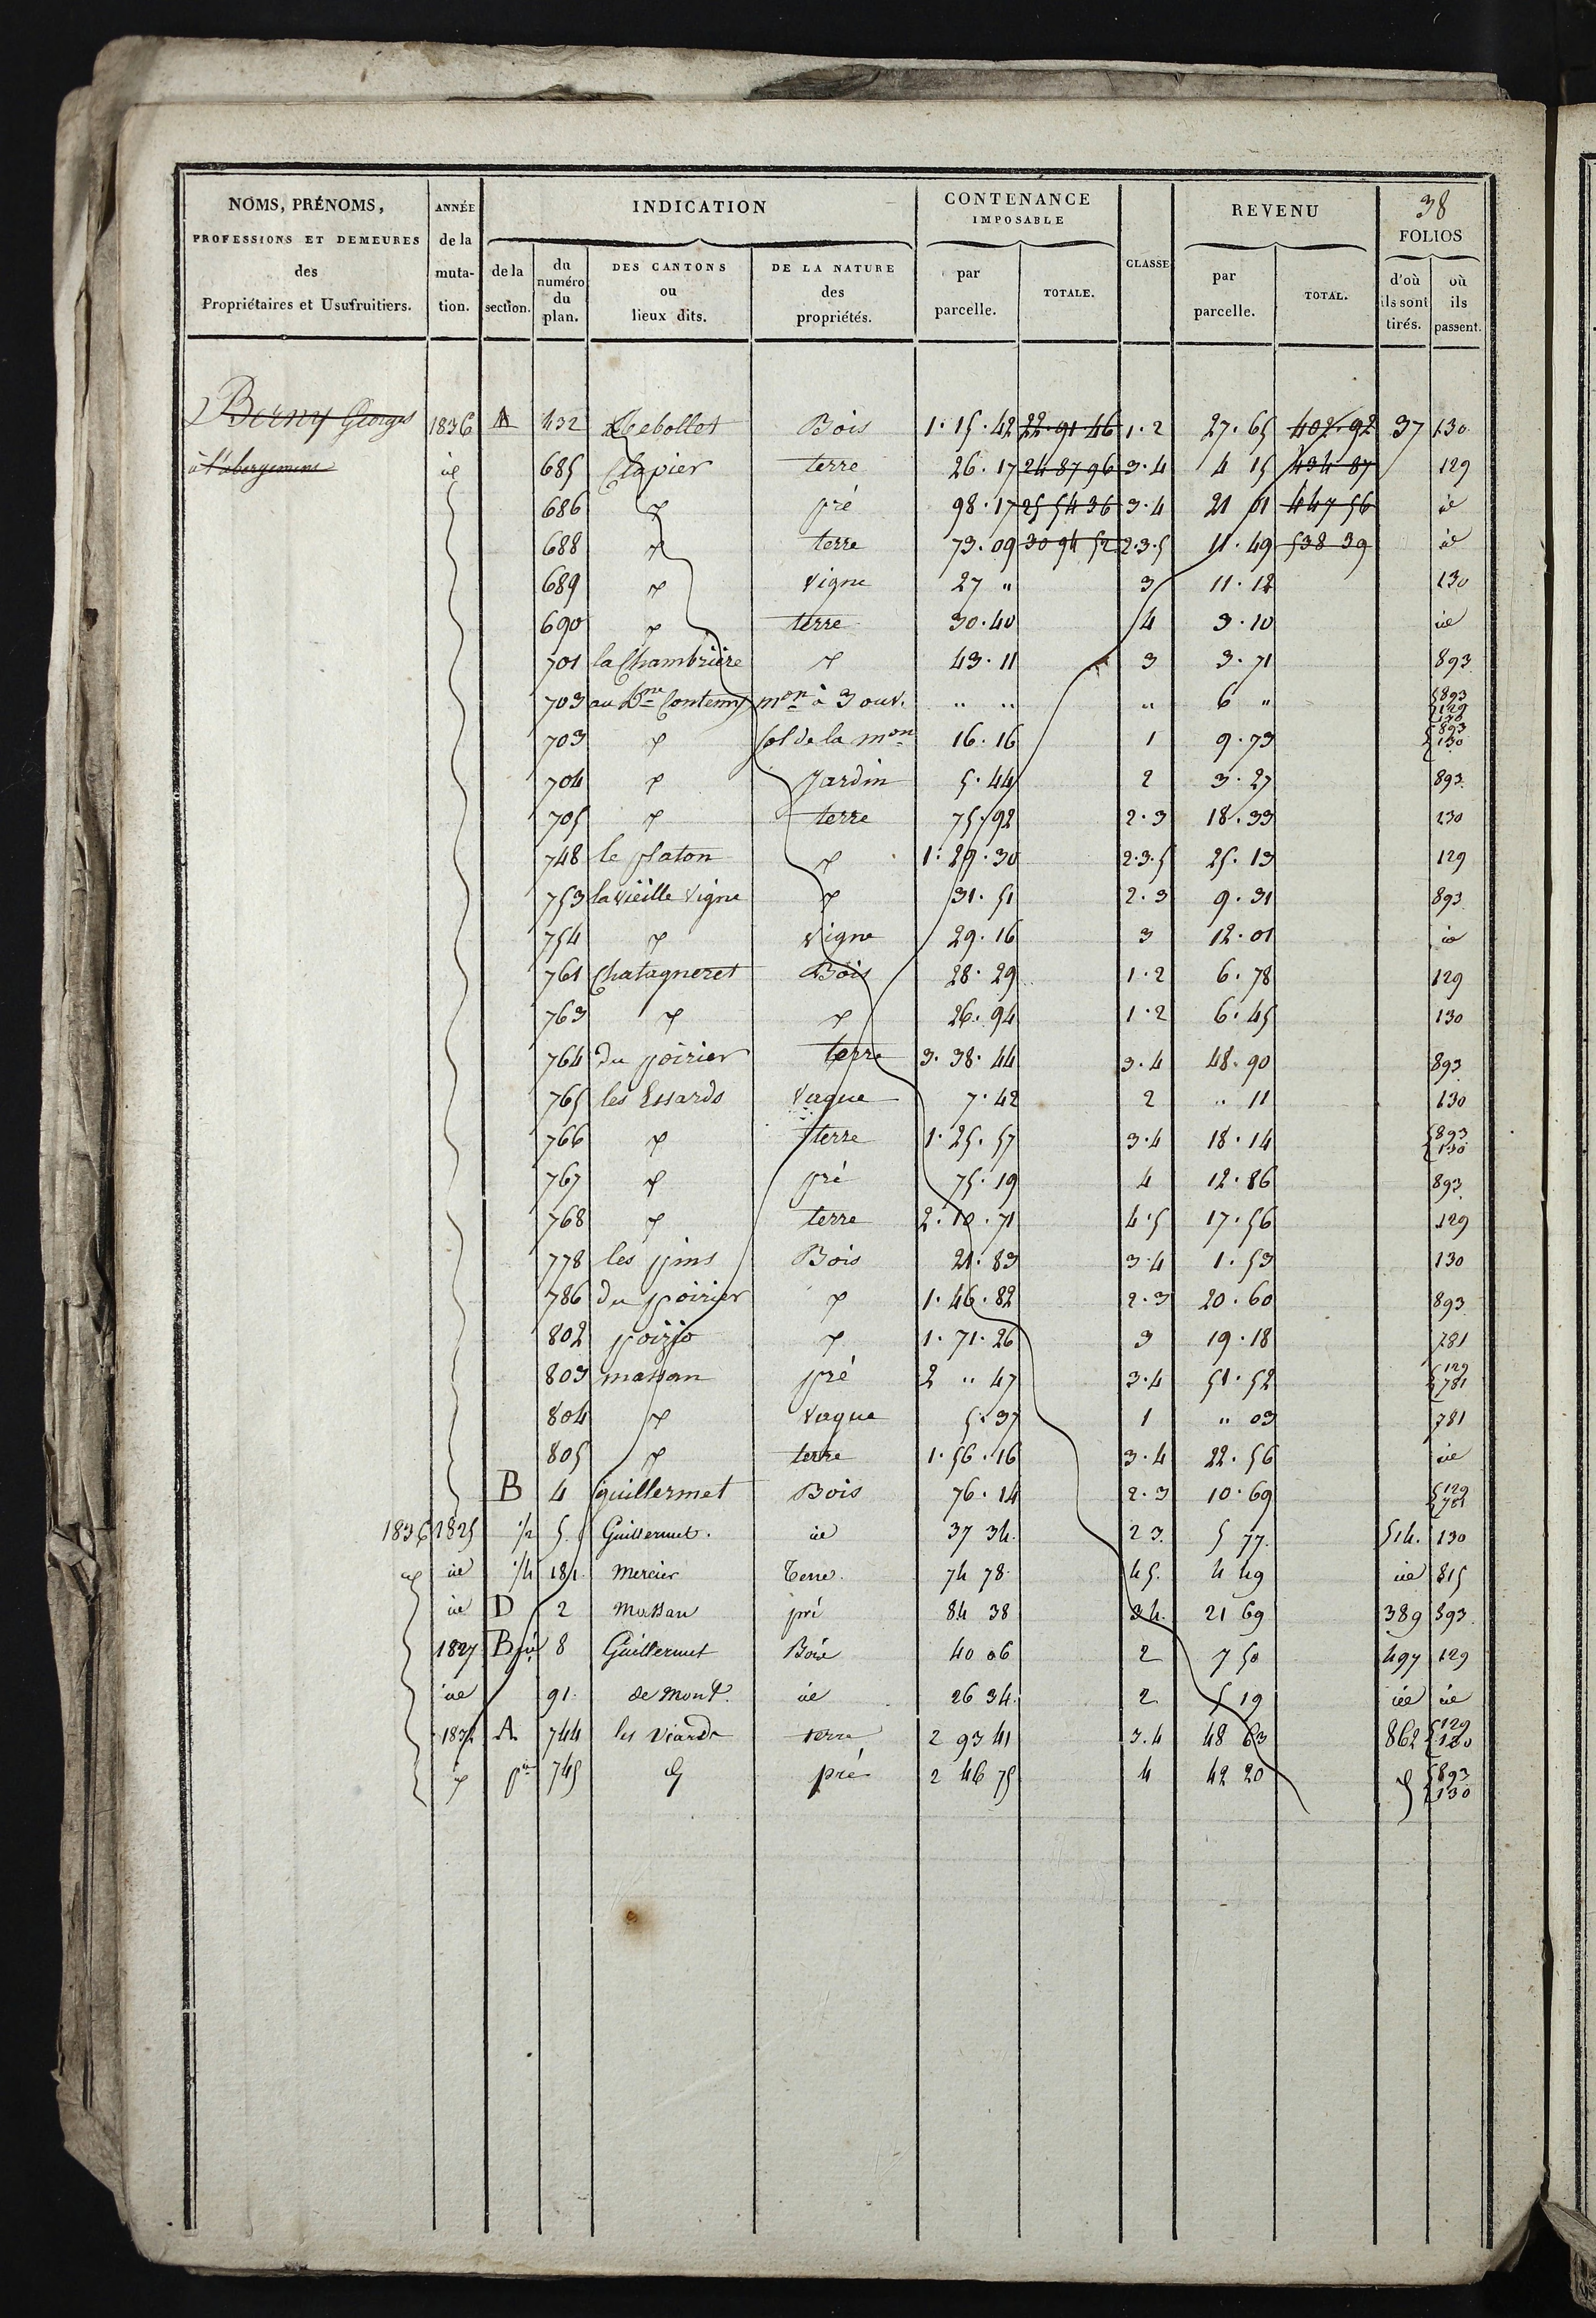 38
NOMS, PRÉNOMS, PROFESSIONS ET DEMEURES des Propriétaires et Usufruitiers.
ANNÉE de la muta-tion.
INDICATION
de la section.
du numéro du plan.
DES CANTONS ou lieux dits.
DE LA NATURE des propriétés.
CONTENANCE IMPOSABLE
par parcelle.
TOTALE.
CLASSE
REVENU
par parcelle.
TOTAL.
FOLIOS
d'où ils sont tirés.
où ils passent.
Berny Georges 1836 A 432 Bois 1·15·42 22·91 46 1·2 27·65 402·92 37 130
à l'abergement id 685 Clapier terre 26·17 24 87 96 3·4 4 15 434 87 129
686 pré 98·17 25 54 36 3·4 21 01 447 56 id
688 terre 73·09 30 94 52 2·3·5 11·49 538 39 id
689 Vigne 27 " 3 11·12 130
690 terre 30·40 4 3·10 id
701 la Chambrière 43·11 3 3·71 893
703 au Dne Contemy mon à 3 ouv. " " " 6 " 893 129 130
703 sol de la mon 16·16 1 9·73 893 130
704 Jardin 5·44 2 3·27 893
705 terre 75·92 2·3 18·33 230
748 le platon 1·29·30 2·3·5 25·13 129
753 la vieille Vigne 31·51 2·3 9·31 893
754 Vigne 29·16 3 12·01 id
761 Chatagneret Bois 28·29 1·2 6·78 129
763 26·94 1·2 6·45 130
764 du poirier terre 3·38·44 3·4 48·90 893
765 les Essards Vague 7·42 2 " 11 130
766 terre 1·25·57 3·4 18·14 893 130
767 pré 75·19 4 12·86 893
768 terre 2·10·71 4·5 17·56 129
778 les pins Bois 21·83 3·4 1·53 130
786 du poirier 1·46·82 2·3 20·60 893
802 1·71·26 3 19·18 781
803 massan pré 2 " 47 3·4 51·52 129 781
804 Vague 5·37 1 " 03 781
805 terre 1·56·16 3·4 22·56 id
B 4 guillermet Bois 76·14 2·3 10·69 129 781
1836 1825 1/2 5 Guillermet. id 37 34. 2 3. 5 77. 514. 130
id 1/4 181 Mercier Terre. 74 78 4 5. 4 49 id 815
id D 2 Massan pré 84 38 3 4. 21 69 389 893
1827 B 8 Guillermet Bois 40 06 2 7 50 497 129
id 91 de Mont. id 26 34. 2 5 19 id id
1832 A 744 les Viards terre 2 93 41 3.4 48 63 862 129 130
745 pré 2 46 75 4 42 20 893 130